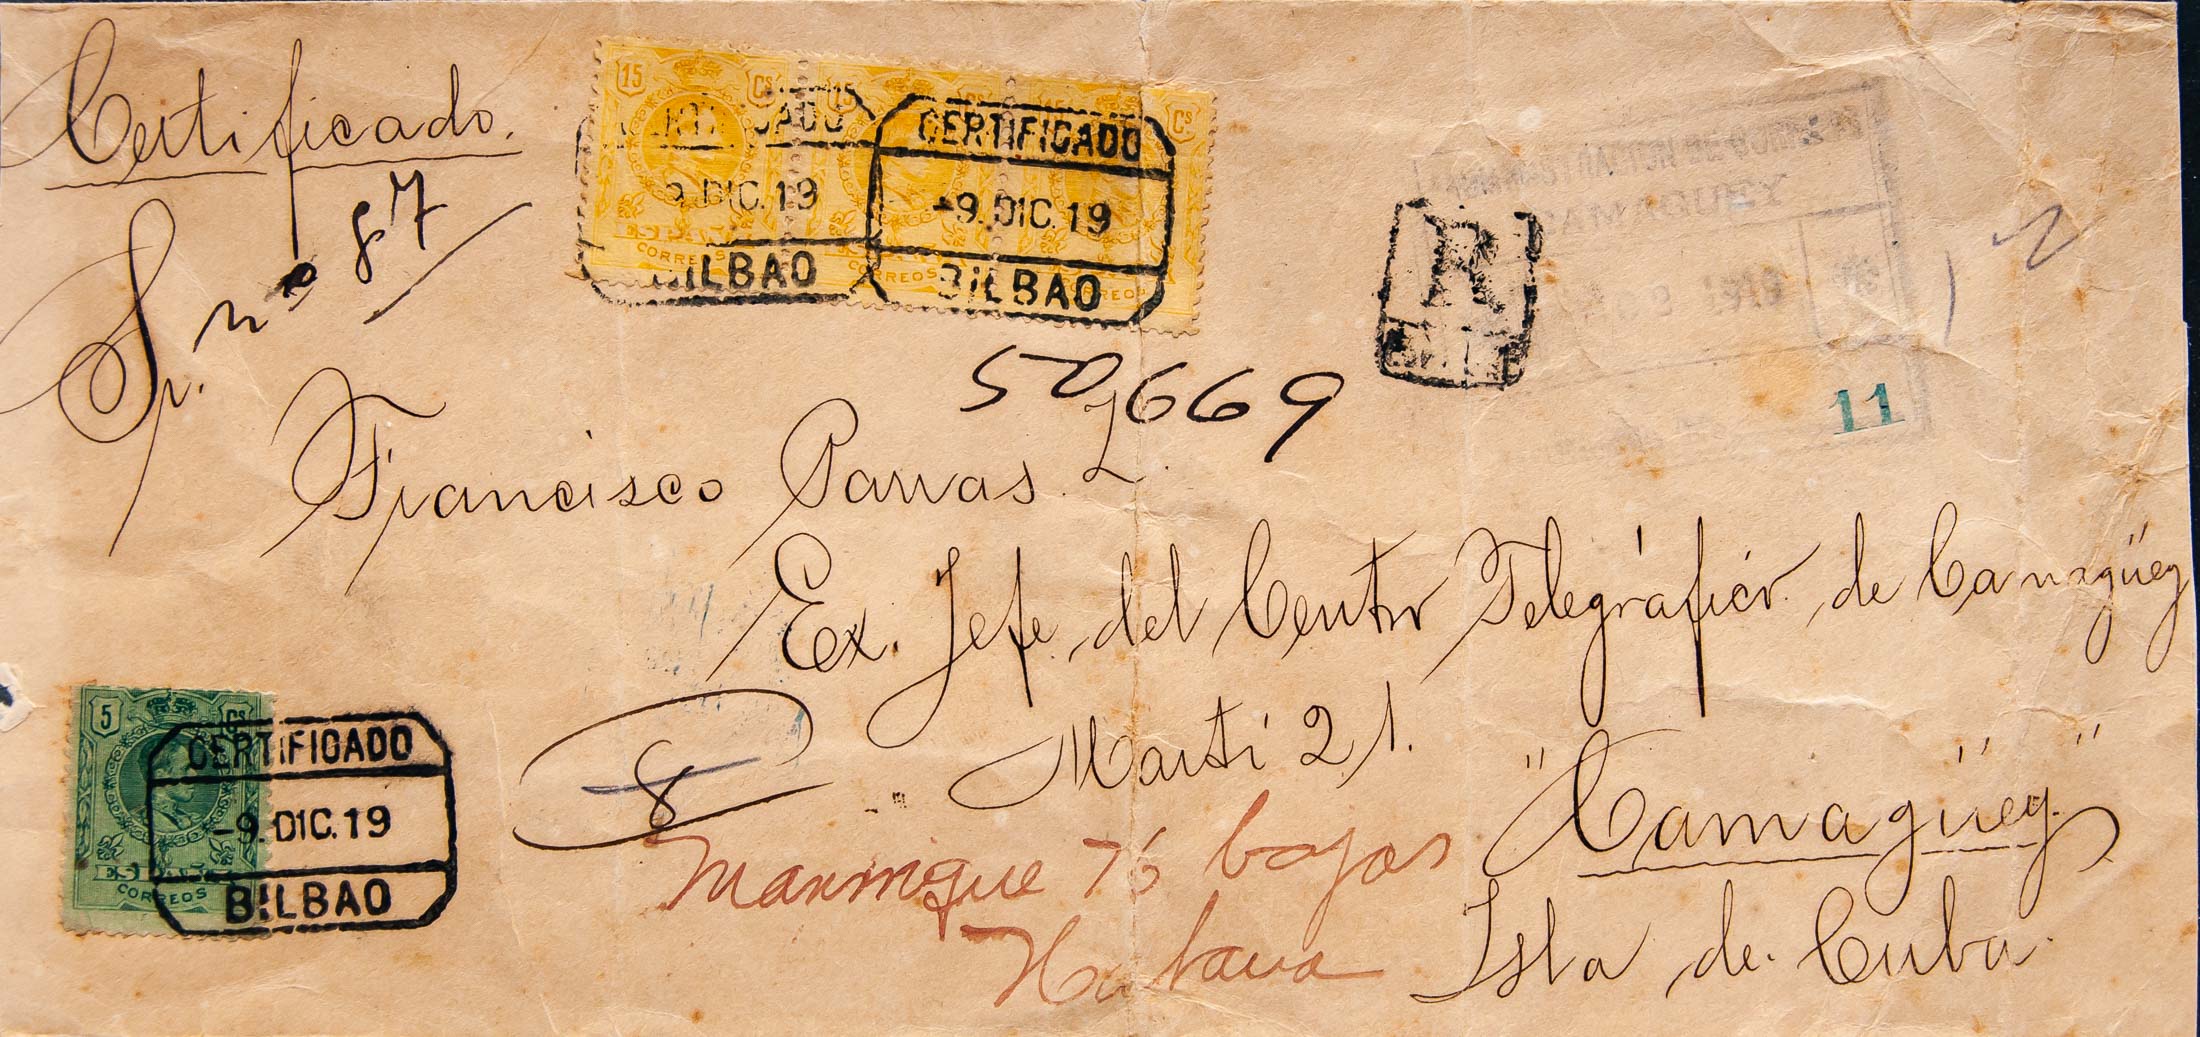 Certificado.
Sp. nº 87
15 Cs 15 Cs 15 Cs
CERTIFICADO CERTIFICADO
9. DIC. 19 -9. DIC. 19
BILBAO BILBAO
CORREOS CORREOS CORREOS
R
CAMAGUEY
1919
11
50669
Francisco Parras L.
Ex. Jefe del Centro Telegráfico de Camagüey
Martí 21.
"Camagüey"
Isla de Cuba.
8
Manrrique 76 bajos
Habana
5 Cs
CERTIFICADO
-9. DIC. 19
BILBAO
CORREOS